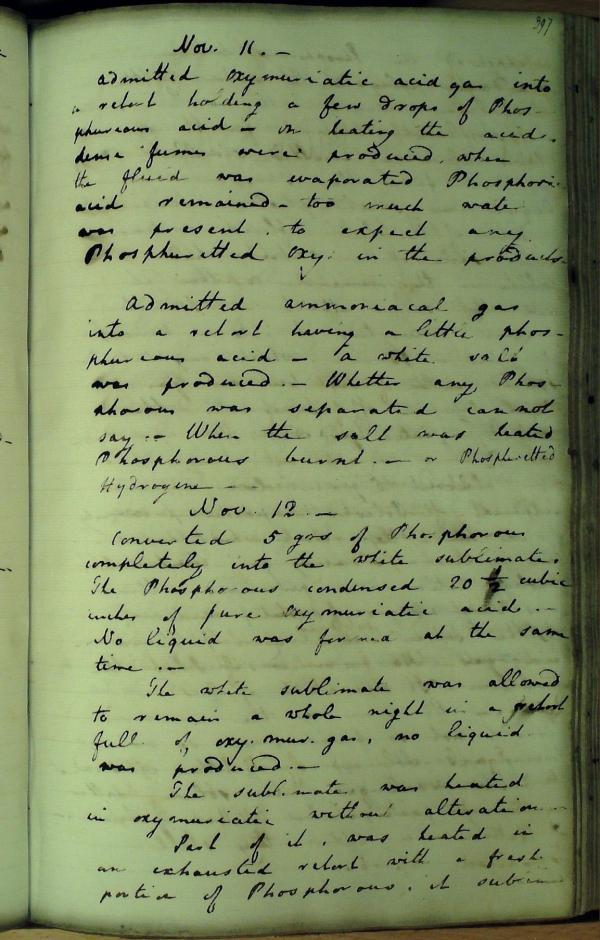 397
Nov. 11. -
admitted oxymuriatic acid gas into
a retort holding a few drops of Phos-
phureous acid - on heating the acid.
dense fumes were produced, when
the fluid was evaporated Phosphoric
acid remained - too much water
was present, to expect any
Phosphuretted oxy: in the products.
admitted ammoniacal gas
into a retort having a little phos-
phureous acid - a white salt
was produced. - Whether any Phos-
phorous was separated can not
say. - When the salt was heated
Phosphorous burnt. - or Phosphuretted
Hydrogene -
Nov. 12. -
Converted 5 grs of Phosphorous
completely into the white sublimate.
The Phosphorous condensed 20 1/2 cubic
inches of pure oxymuriatic acid. -
No liquid was formed at the same
time. -
The white sublimate was allowed
to remain a whole night in a retort
full of oxy. mur. gas, no liquid
was produced. -
The sublimate was heated
in oxymuriatic without alteration. -
Part of it, was heated in
an exhausted retort with a fresh
portion of Phosphorous, it